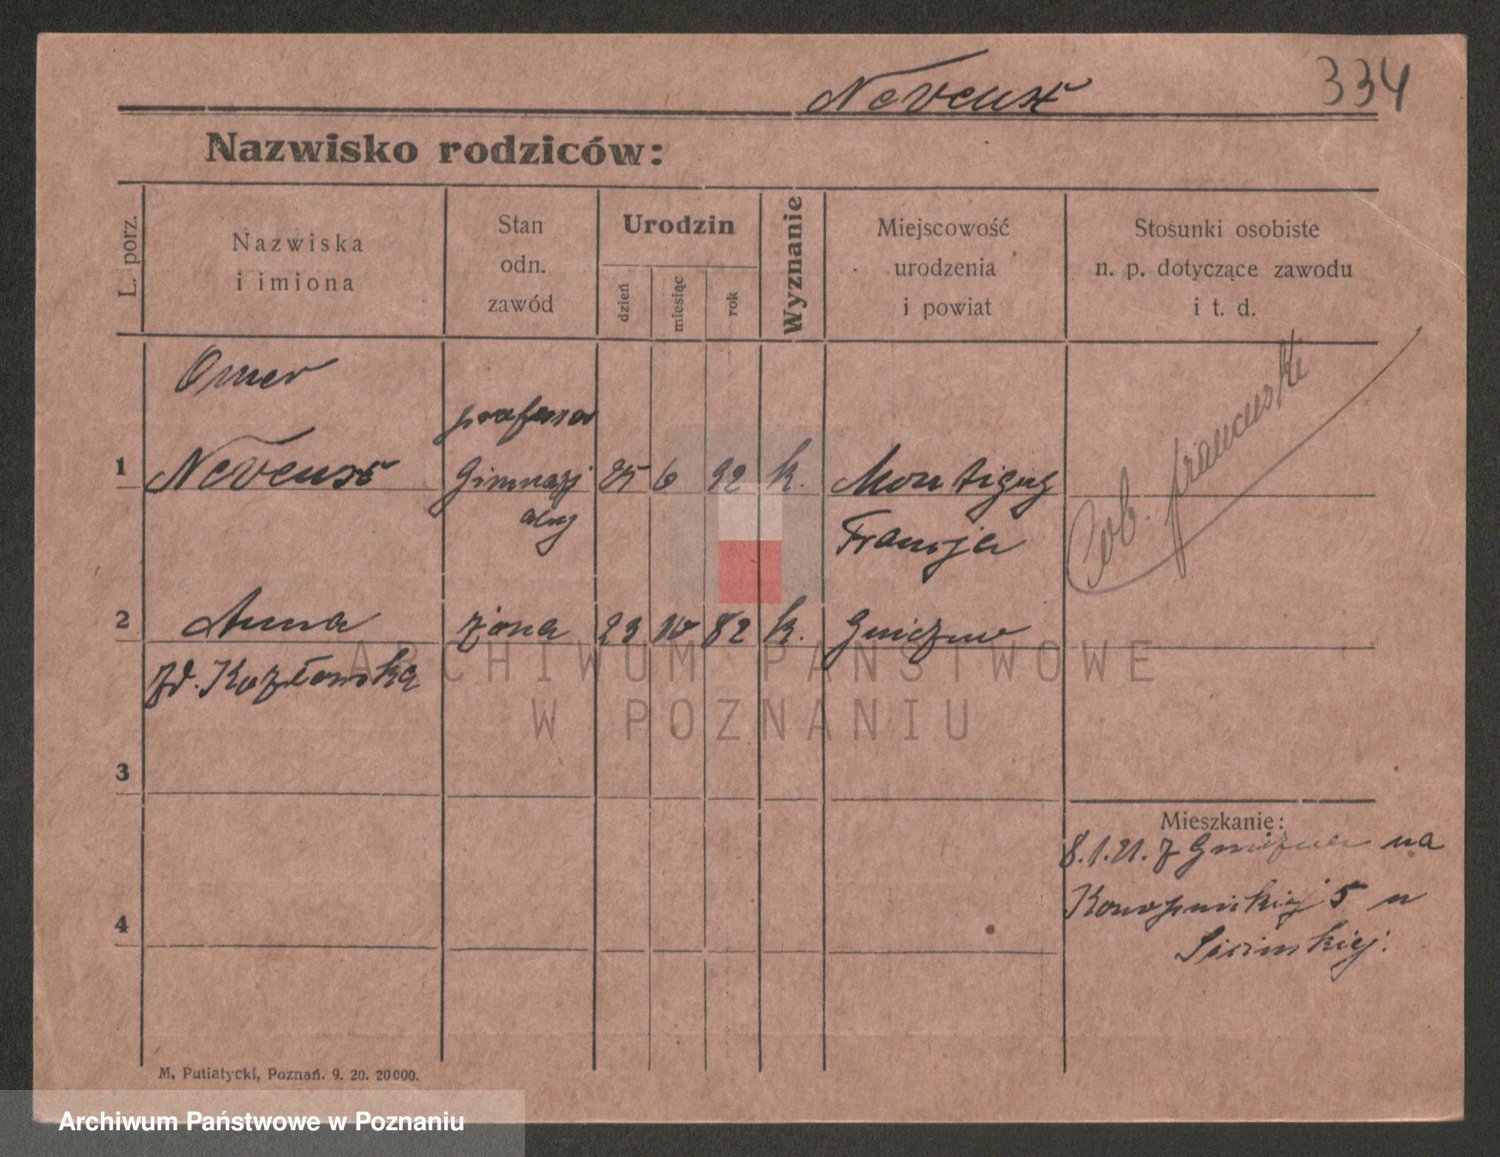 Neveux
334
Nazwisko rodziców:
L. porz.
Nazwiska
i imiona
Stan
odn.
zawód
Urodzin
dzień
miesiąc
rok
Wyznanie
Miejscowość
urodzenia
i powiat
Stosunki osobiste
n. p. dotyczące zawodu
i t. d.
Omer
profesor
1 Neveux Gimnazj 25 6 92 k. Montigny
alny
Francja
Ob. francuski
2 Anna żona 23 10 82 k.
zd. Kozłowska
ARCHIWUM PAŃSTWOWE
W POZNANIU
3
Mieszkanie:
8.1.21. z na
5 u
4
M. Putiatycki, Poznań. 9. 20. 20000.
Archiwum Państwowe w Poznaniu